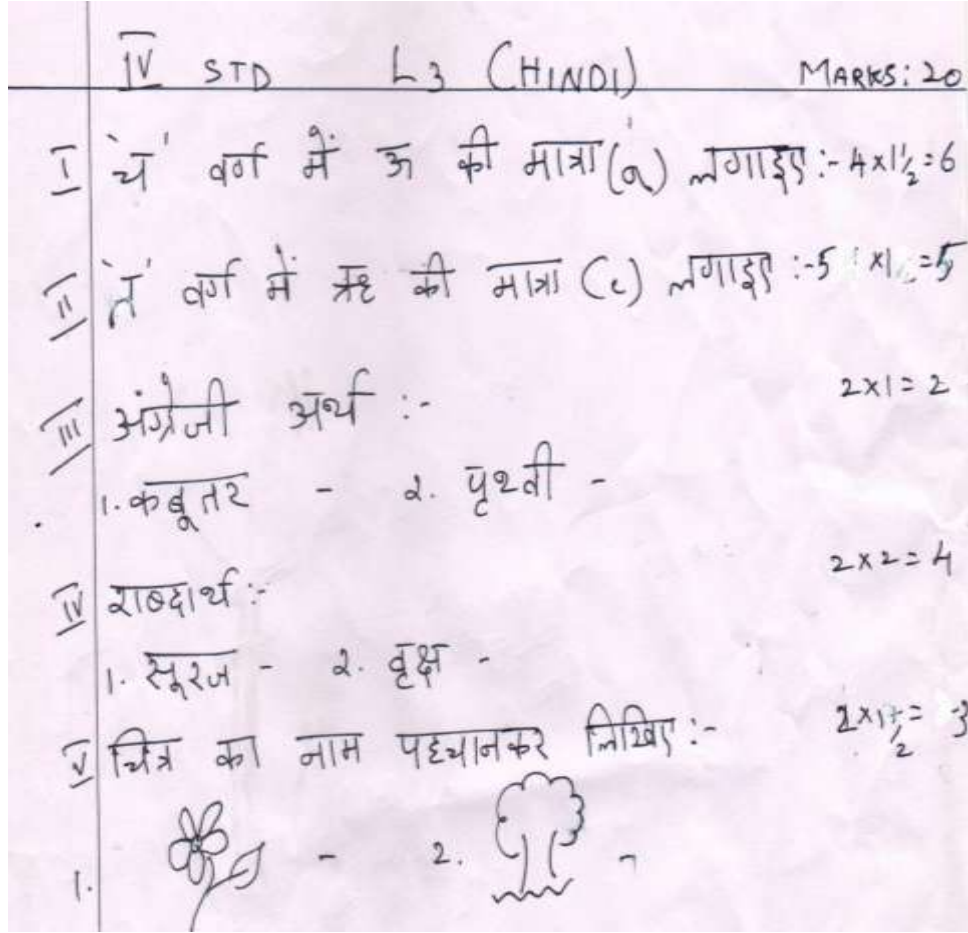 IV STD L3 (HINDI) MARKS: 20
I 'य' वर्ग में ऊ की मात्रा (ू) लगाइए :- 4x1½=6
II 'त' वर्ग में ऋ की मात्रा (ृ) लगाइए :- 5x1=5
III अंग्रेजी अर्थ :- 2x1=2
1. कबूतर - 2. पृथ्वी -
IV शब्दार्थ :- 2x2=4
1. सूरज - २. वृक्ष -
V चित्र का नाम पहचानकर लिखिए :- 2x1½=3
1. - 2. -